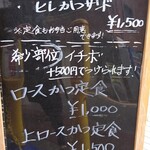 ・ヒレかつサンド
¥1,500
定食もお作りご用意
できます!
希少部位 イチボ
+500円でつけられます!
ロースかつ定食
¥1,000
上ロースかつ定食
¥1,500